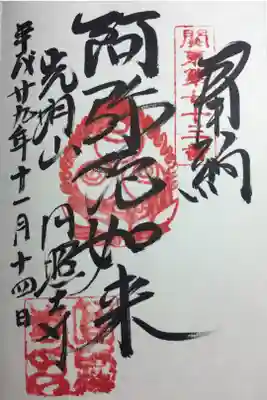 奉納
關東第廿三番
阿弥陀如来
光明山
円照寺
平成廿九年十一月十四日